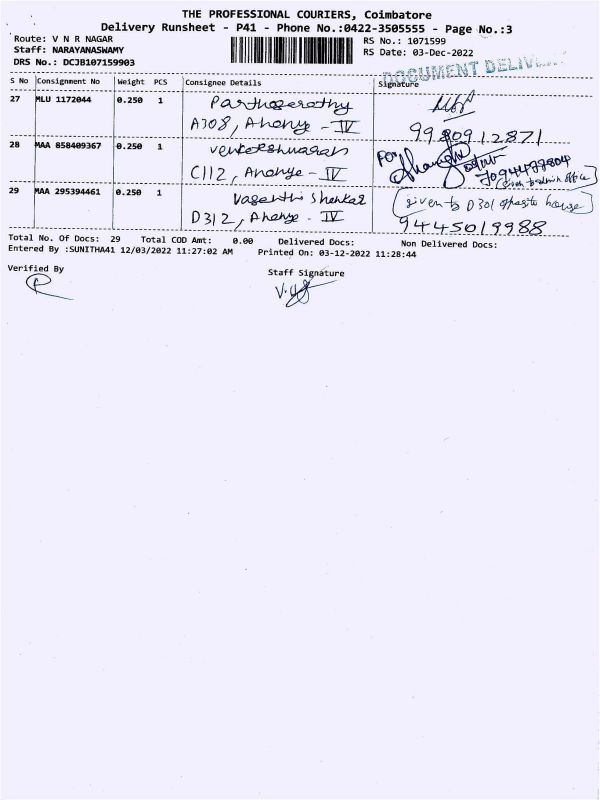 THE PROFESSIONAL COURIERS, Coimbatore
Delivery Runsheet - P41 - Phone No.:0422-3505555 - Page No.:3
Route: V N R NAGAR
RS No.: 1071599
Staff: NARAYANASWAMY
RS Date: 03-Dec-2022
DRS No.: DCJB107159903
DOCUMENT DELIVE
S No Consignment No Weight PCS Consignee Details Signature
27 MLU 1172044 0.250 1 Parthasarathy
A308, Ananya - IV 9980912871
28 MAA 858409367 0.250 1 Venkateshwaran
C112, Ananya - IV
For
29 MAA 295394461 0.250 1 Vasanthi Shankar
(given to D301 opposite house)
D312, Ananya - IV 9445019988
Total No. Of Docs: 29 Total COD Amt: 0.00 Delivered Docs: Non Delivered Docs:
Entered By :SUNITHA41 12/03/2022 11:27:02 AM Printed On: 03-12-2022 11:28:44
Verified By
Staff Signature